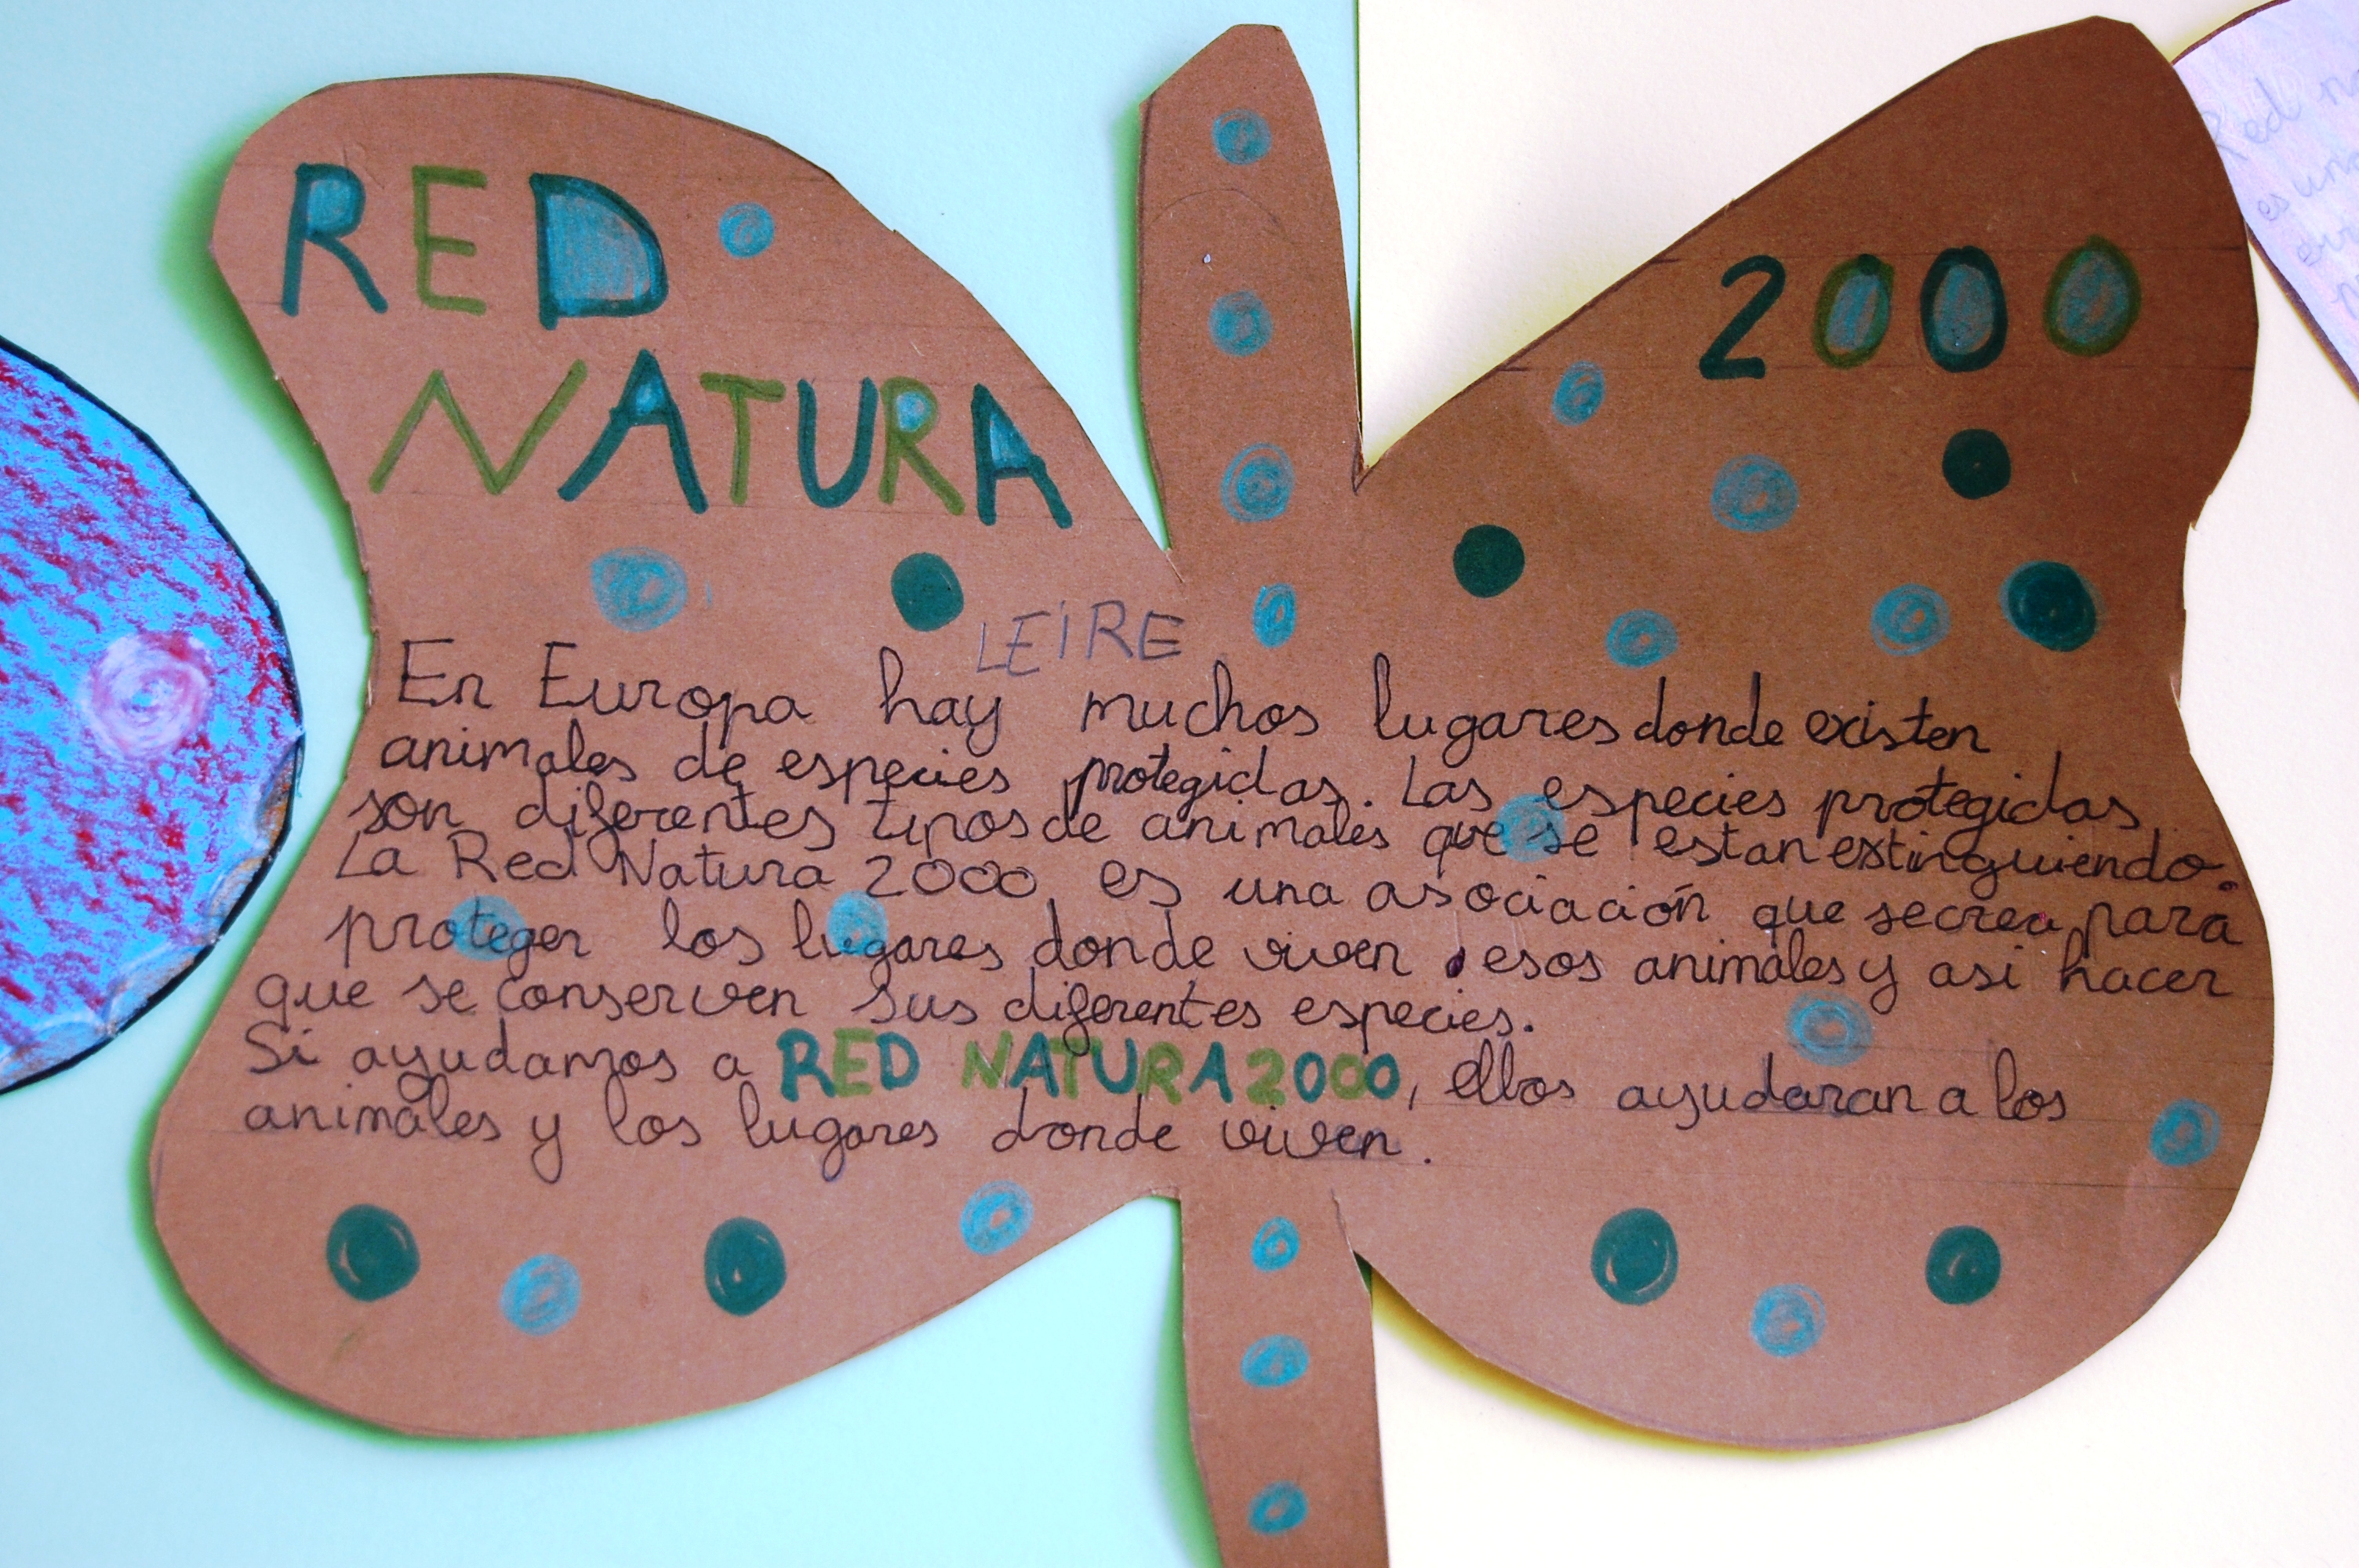 RED
NATURA
2000
LEIRE
En Europa hay muchos lugares donde existen
animales de especies protegidas. Las especies protegidas
son diferentes tipos de animales que se estan extinguiendo.
La Red Natura 2000 es una asociación que se crea para
proteger los lugares donde viven esos animales y asi hacer
que se conserven sus diferentes especies.
Si ayudamos a RED NATURA 2000, ellos ayudaran a los
animales y los lugares donde viven.
Red
es una